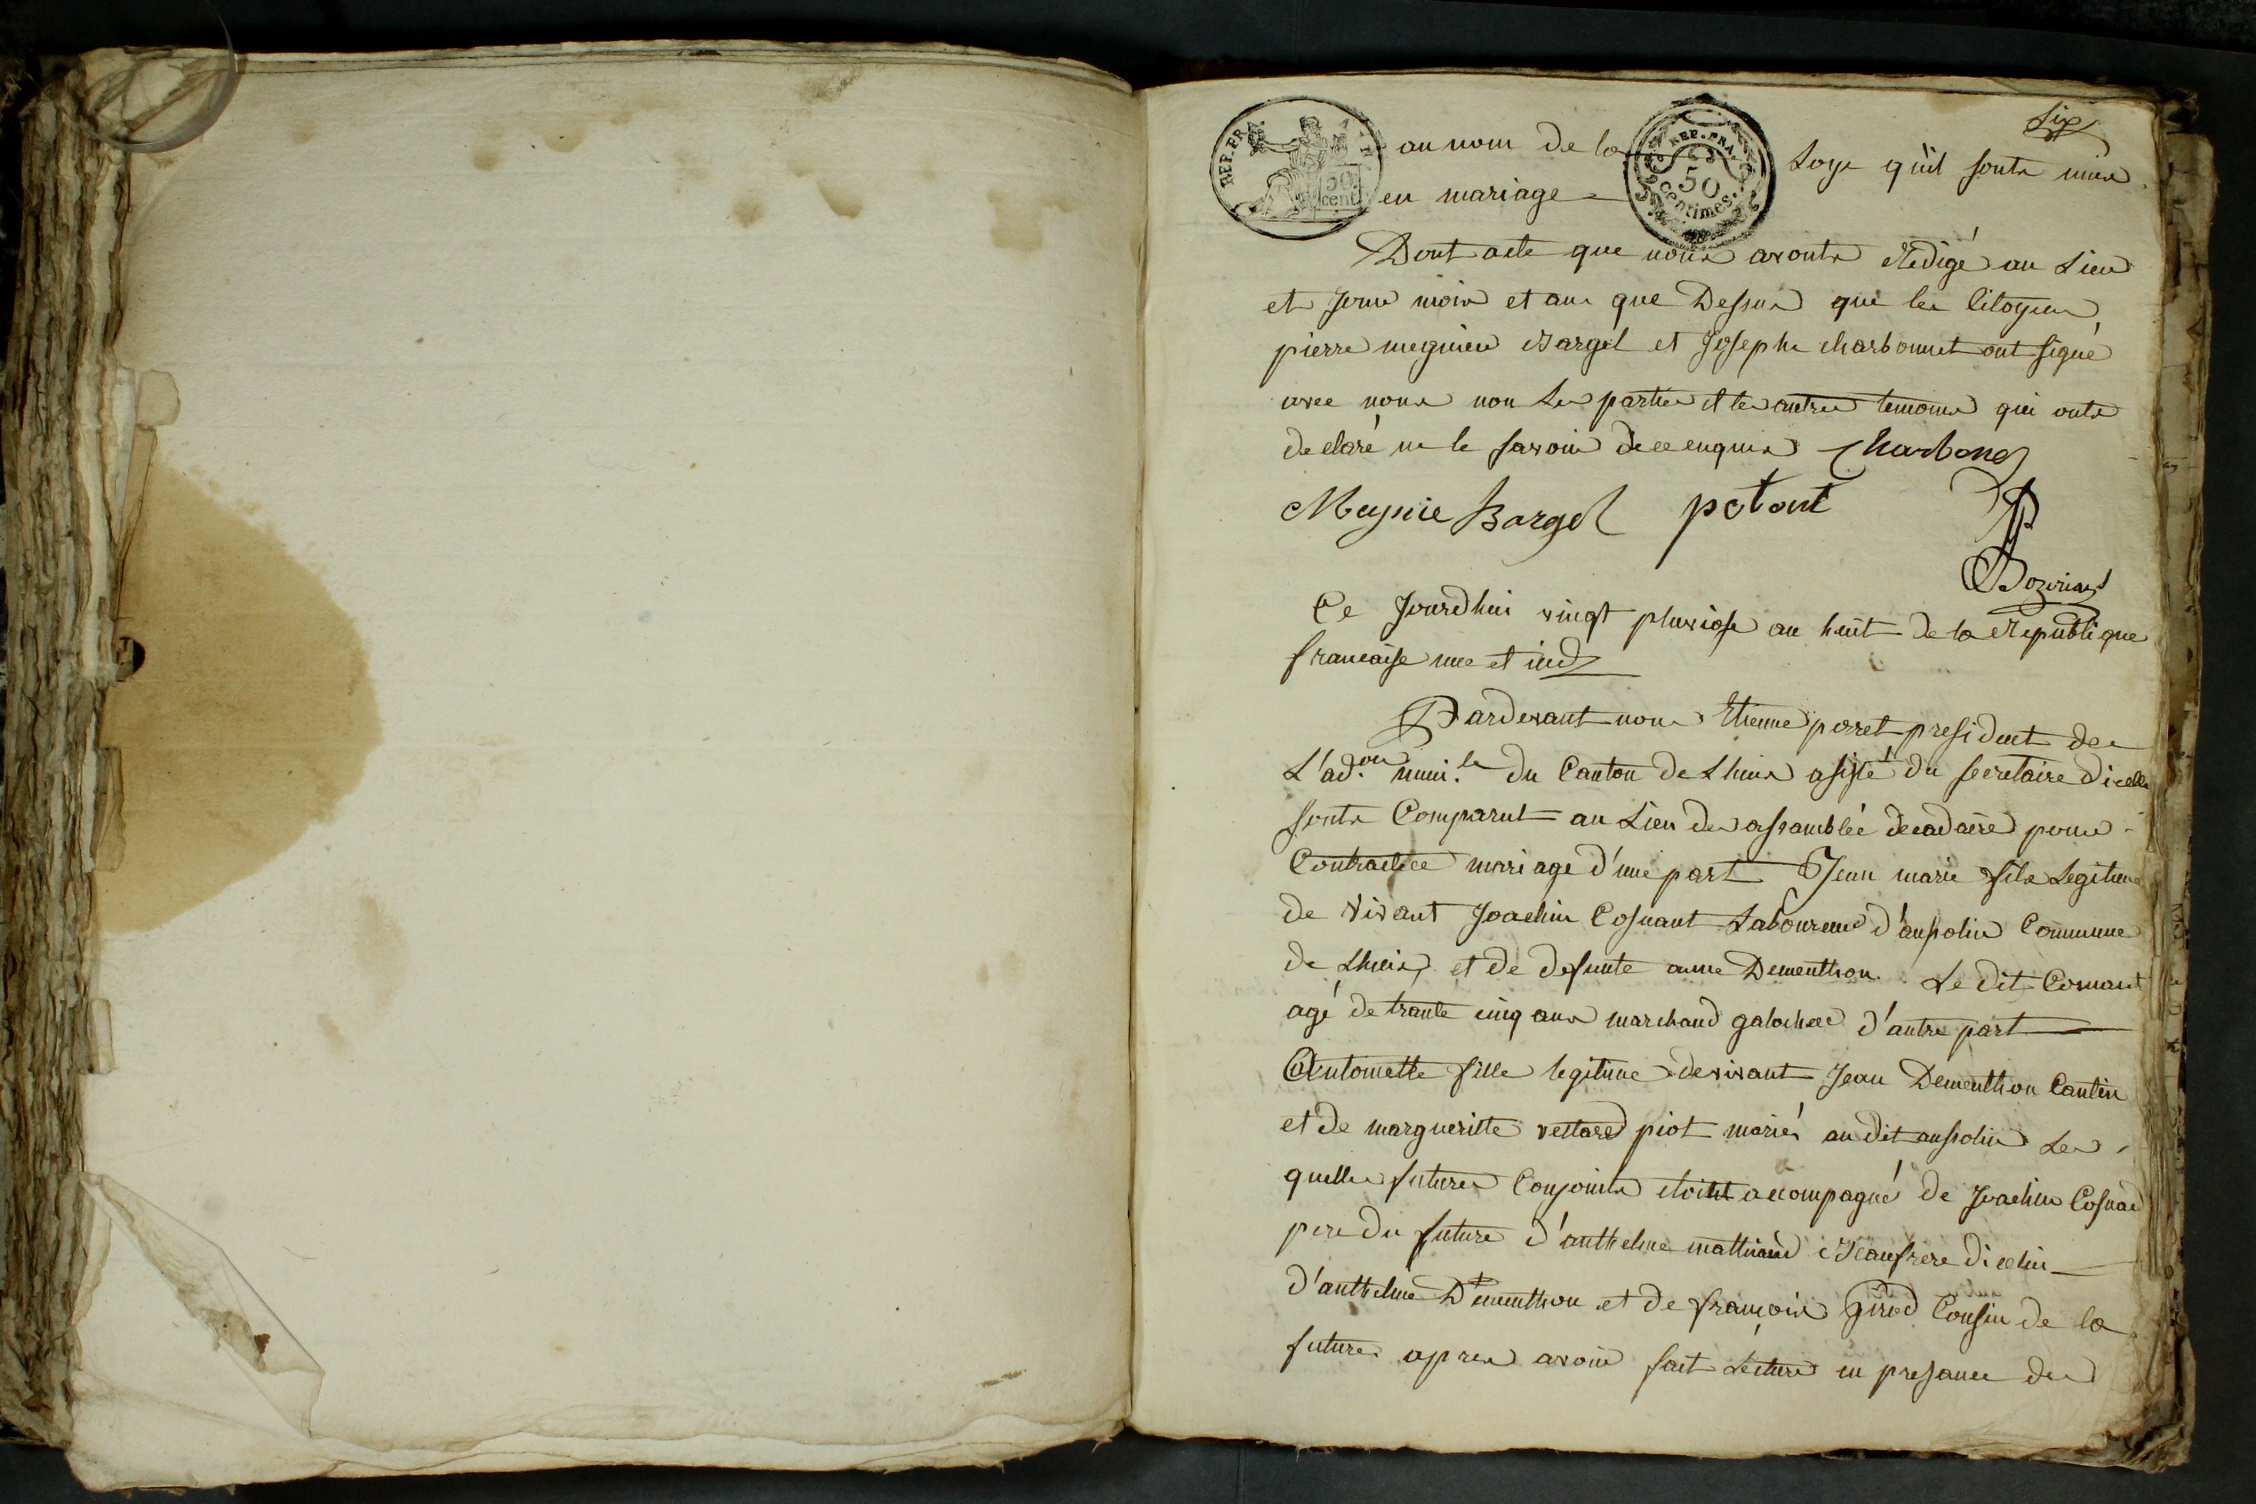 Six
REP. FRA
50
cent
REP. FRA.
50
centimes.
au nom de la Loye qu'il sonts unis
en mariage
Dont acte que nous avonts Redigé au Lieu
et Jour mois et an que Dessus que les Citoyens
pierre Bargel et Joseph charbonnet ont signé
avec nous non Les parties et les autres temoins qui onts
declaré ne le savoir de ce enquis Charbone
Bargel potont
Ce Jourdhui vingt pluviose an huit de la Republique
francaise une et ind
Pardevant nous Etienne poret president de
L'ad.on mun.le du Canton de Lhuis assisté du secretaire dicelle
sonts Comparut au Lieu des assamblée decadaire pour
Contracter mariage d'une part Jean marie fils Legitime
de vivant Joachin Cosnant Laboureur d'ansolin Commune
de Lhuis, et de defunte anne Dementhon. Le dit Cosnant
agé de trante cinq ans marchand galocher d'autre part
Antoinette fille legitime de vivant Jean Dementhon Cantin
et de margueritte vettard piot mariés au dit ansolin Les
quelles futures Conjoints etoint accompagné de Joachin Cosnard
pere du future d'anthelme Beaufrere dicelui
d'anthelme Dementhon et de françois Girod Cousin de la
future apres avoir fait Lecture en presance des